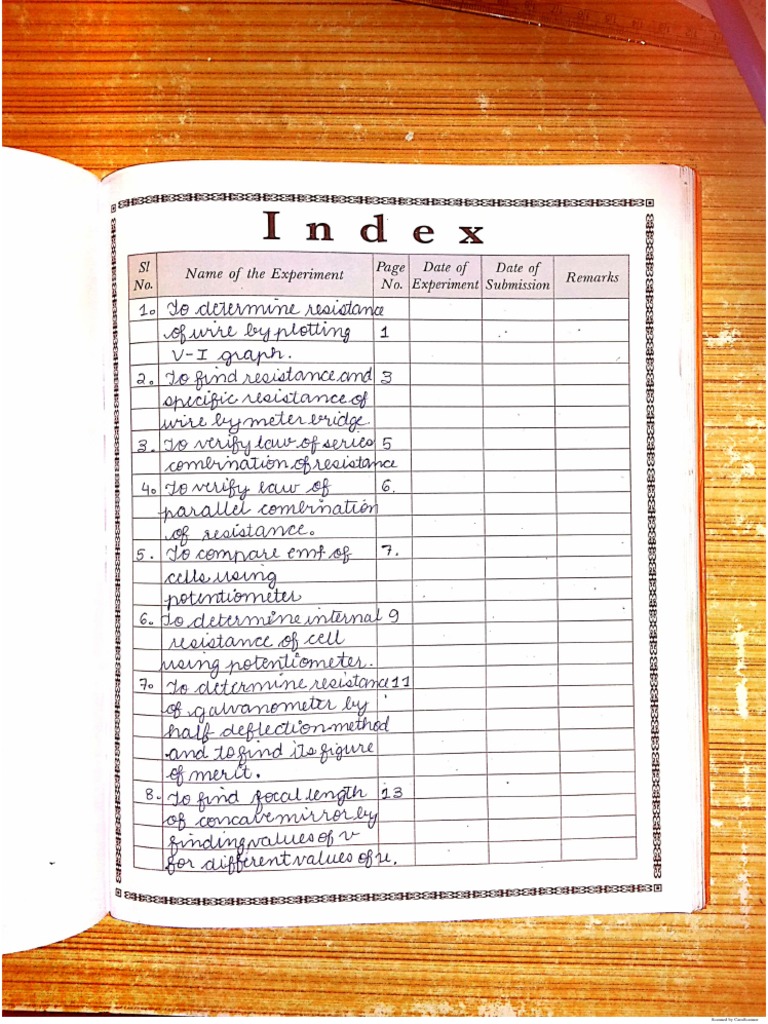 Index
Sl No. Name of the Experiment Page No. Date of Experiment Date of Submission Remarks
1. To determine resistance
of wire by plotting 1
V-I graph.
2. To find resistance and 3
specific resistance of
wire by meter bridge.
3. To verify law of series 5
combination of resistance
4. To verify law of 6.
parallel combination
of resistance.
5. To compare emf of 7.
cells using
potentiometer
6. To determine internal 9
resistance of cell
using potentiometer.
7. To determine resistance 11
of galvanometer by
half deflection method
and to find its figure
of merit.
8. To find focal length 13
of concave mirror by
finding values of v
for different values of u.
Scanned by CamScanner